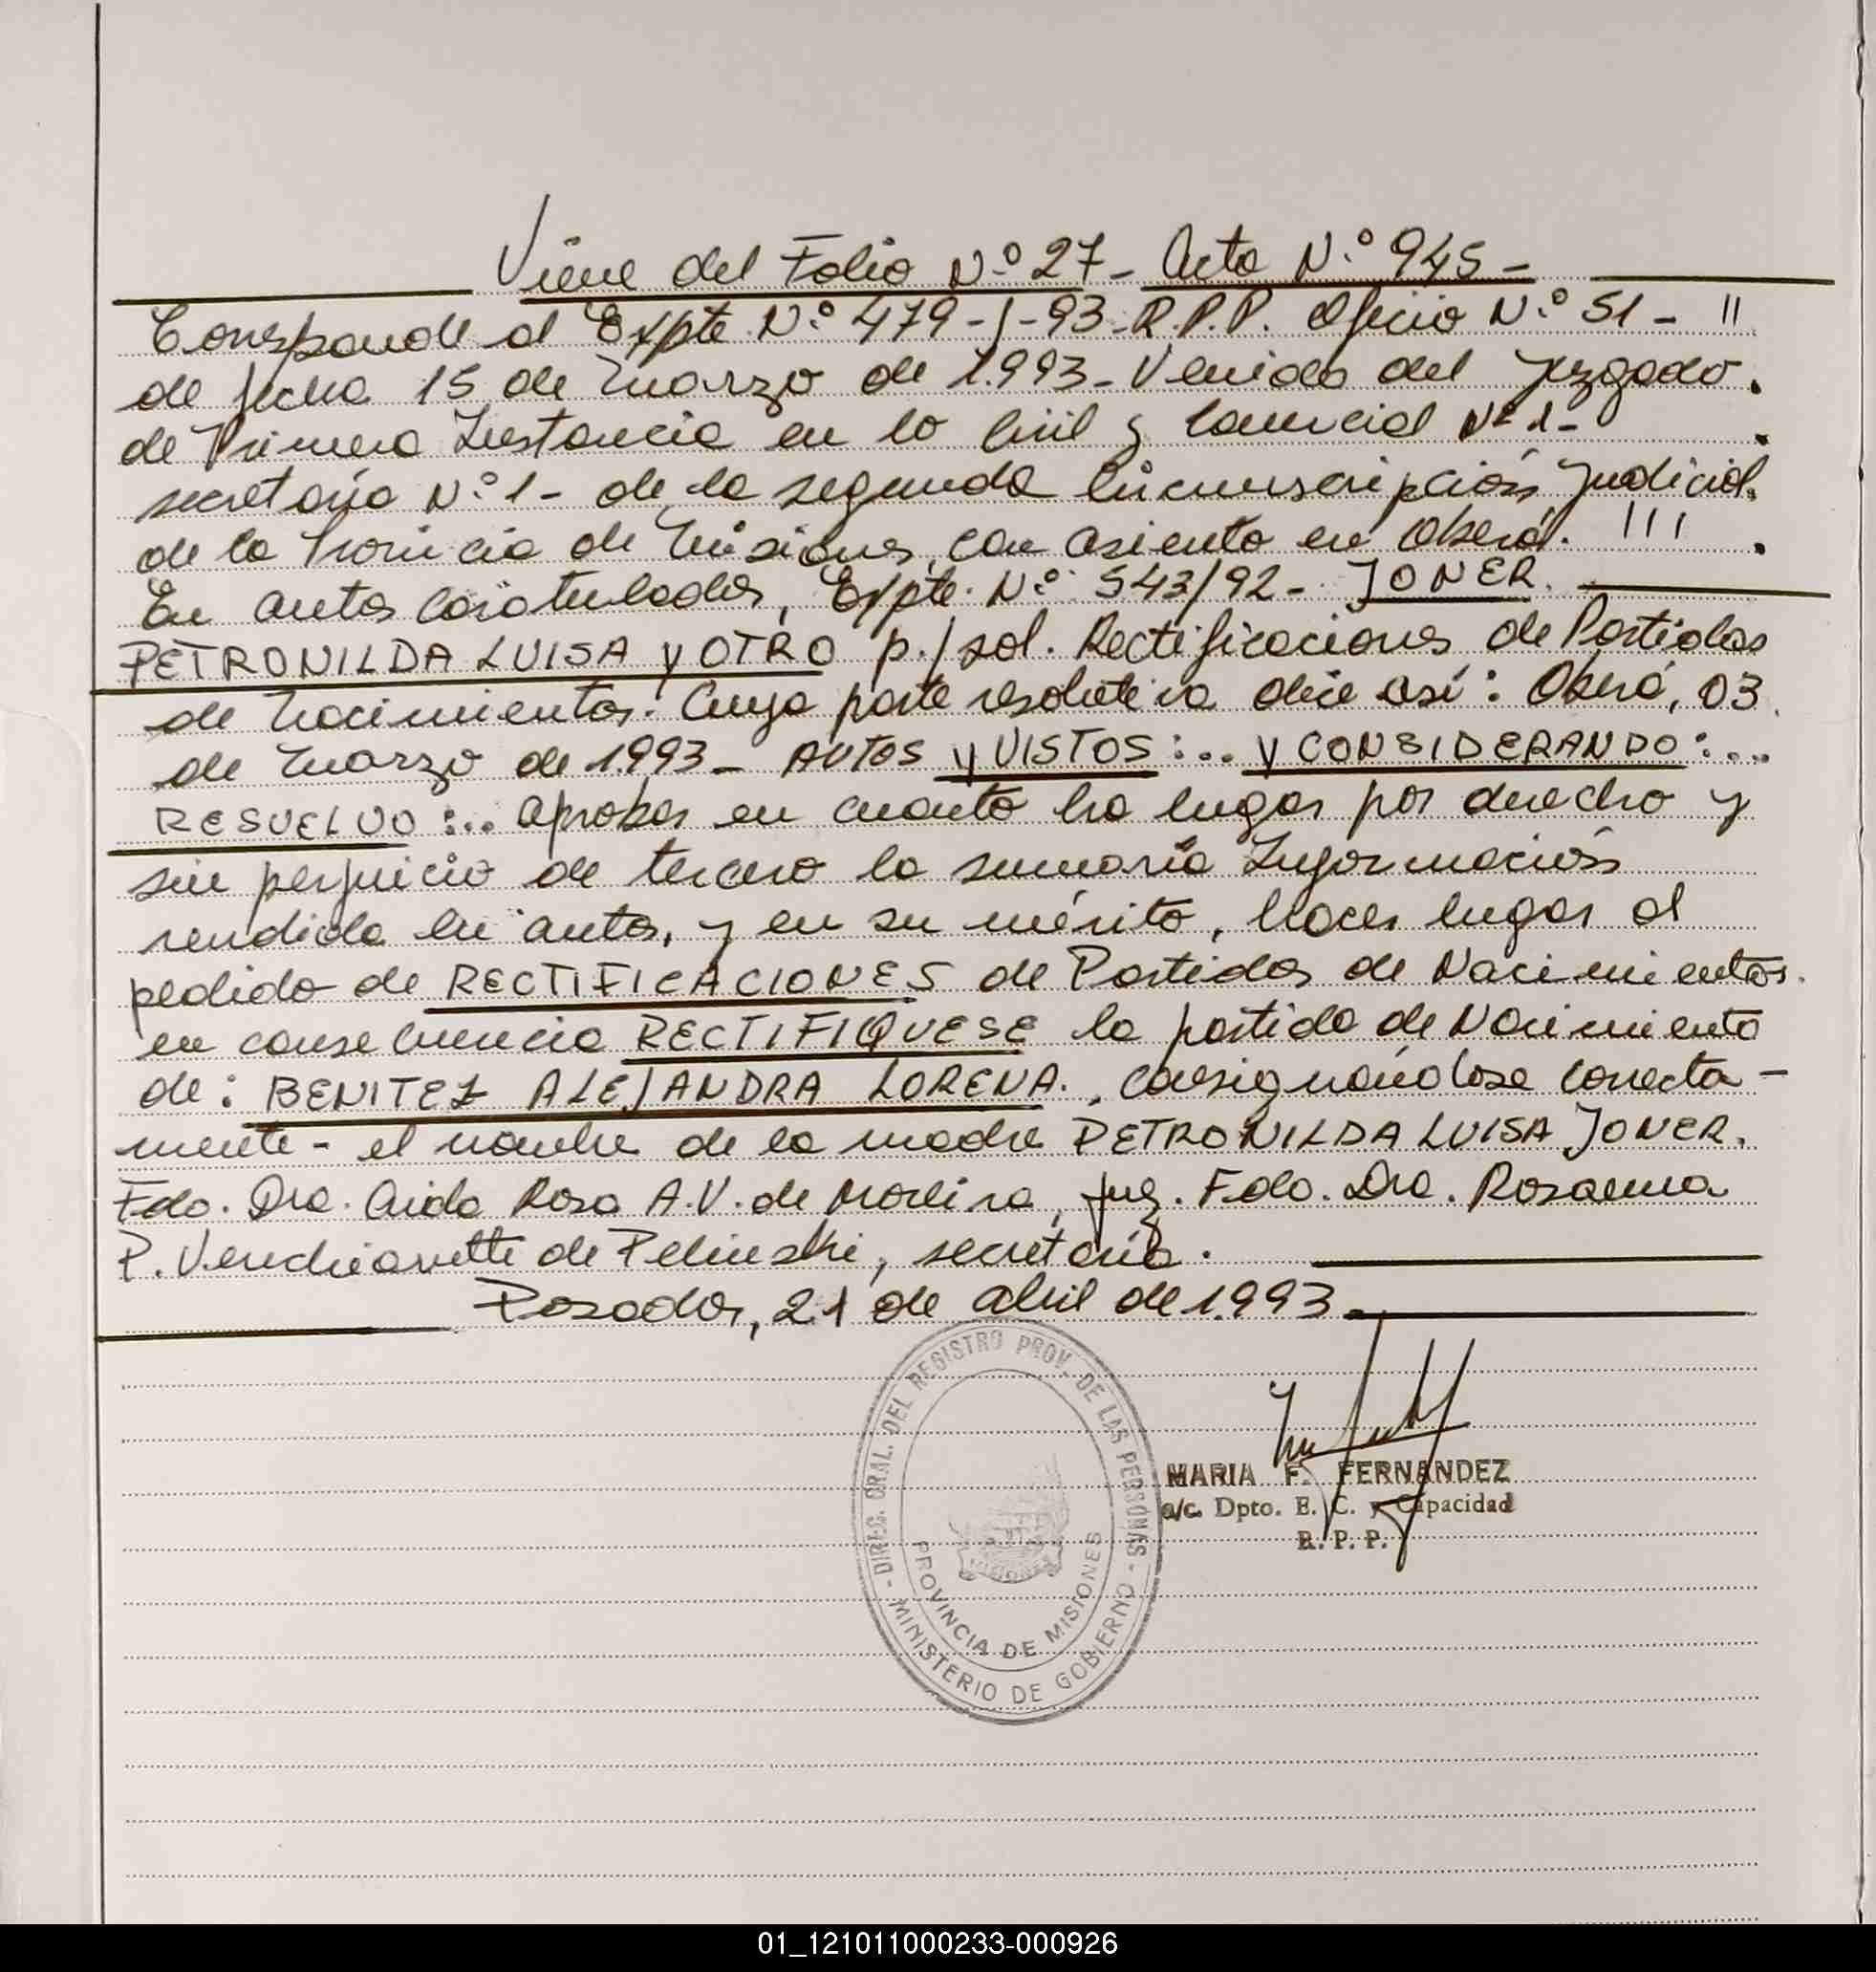 Viene del Folio N° 27 - Acta N° 945 -
Corresponde al Expte. N° 479-J-93-R.P.P. Oficio N° 51 - "
de fecha 15 de Marzo de 1.993 - Venido del Juzgado.
de Primera Instancia en lo Civil y Comercial N° 1 -
secretaría N° 1 - de la segunda Circunscripción Judicial.
de la Provincia de Misiones, con asiento en Oberá. '''
En autos Caratulados, Expte. N° 543/92 - JONER.
PETRONILDA LUISA y OTRO p./sol. Rectificaciones de Partidas
de Nacimientos. Cuya parte resolutiva dice así: Oberá, 03
de Marzo de 1993 - AUTOS y VISTOS:... Y CONSIDERANDO:...
RESUELVO:... aprobar en cuanto ha lugar por derecho y
sin perjuicio de tercero la sumaria Información
rendida en autos, y en su mérito, hacer lugar al
pedido de RECTIFICACIONES de Partidas de Nacimientos.
en consecuencia RECTIFIQUESE la partida de Nacimiento
de: BENITEZ ALEJANDRA LORENA., consignándose correcta-
mente - el nombre de la madre PETRONILDA LUISA JONER.
Fdo. Dra. Aida Rosa A.V. de Moreira, juez. Fdo. Dra. Rosanna
P. Venchiarutti de Pelinski, secretaria.
Posadas, 21 de abril de 1.993 -
DIREC. GRAL. DEL REGISTRO PROV. DE LAS PERSONAS -
MINISTERIO DE GOBIERNO
PROVINCIA DE MISIONES
MARIA F. FERNANDEZ
a/c. Dpto. E. C. y Capacidad
R. P. P.
01_121011000233-000926